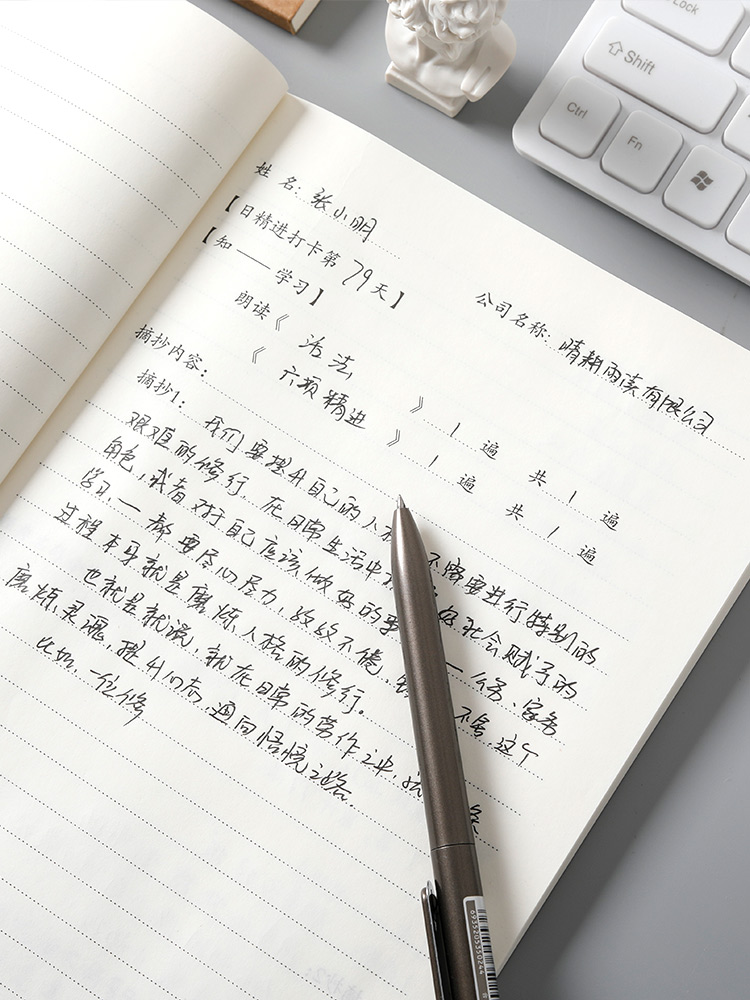 Lock
⇧Shift
Ctrl
Fn
姓 名：张小明
公司名称：晴耕雨读有限公司
【日精进打卡第 79 天】
【知 —— 学习】
朗读《 活法 》 1 遍 共 1 遍
《 六项精进 》 1 遍 共 1 遍
摘抄内容：
摘抄1： 我们要提升自己的人 不需要进行特别的
艰难的修行，在日常生活中 社会赋予的
角色，或者对于自己应该做好的事 —— 公务、家务
学习 — 都要尽心尽力，孜孜不倦， 不舍，这个
过程本身就是磨炼人格的修行。
也就是说，就在日常的劳作之中，
磨炼灵魂，提升心志，通向悟境之路。
比如，一位修
6935205350244